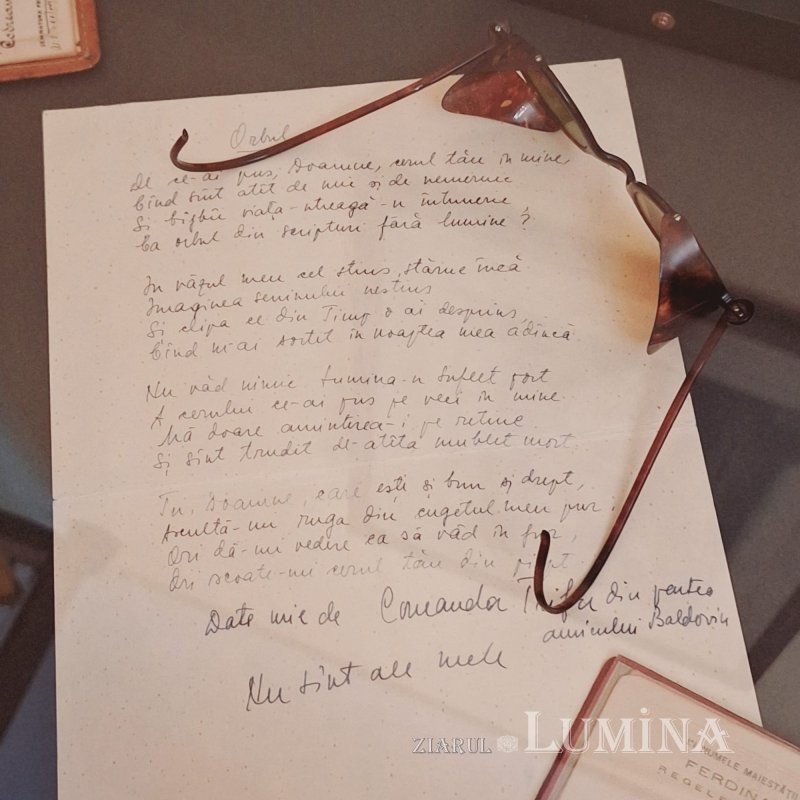 Orbul
De ce-ai pus, Doamne, cerul tău în mine,
Cînd sînt atît de mic și de nemernic
Și bîjbîi viața-ntreagă-n întuneric,
Ca orbul din scripturi fără lumine?
În văzul meu cel stins, stăruie încă
Imaginea seninului nestins
Și clipa ce din Timp o ai desprins,
Cînd m-ai sortit în noaptea mea adîncă
Nu văd nimic. Lumina-n suflet port
A cerului ce-ai pus pe veci în mine.
Mă doare amintirea-i pe retine
Și sînt trudit de-atîta umblet mort.
Tu, Doamne, care ești și bun și drept,
Ascultă-mi ruga din cugetul meu pur:
Ori dă-mi vedere ca să văd în jur,
Ori scoate-mi cerul tău din piept
Date mie de Comandor din pentru
amicului Baldovin
Nu sînt ale mele
ZIARUL LUMINA
NUMELE MAIESTĂȚII
FERDIN
REGELE